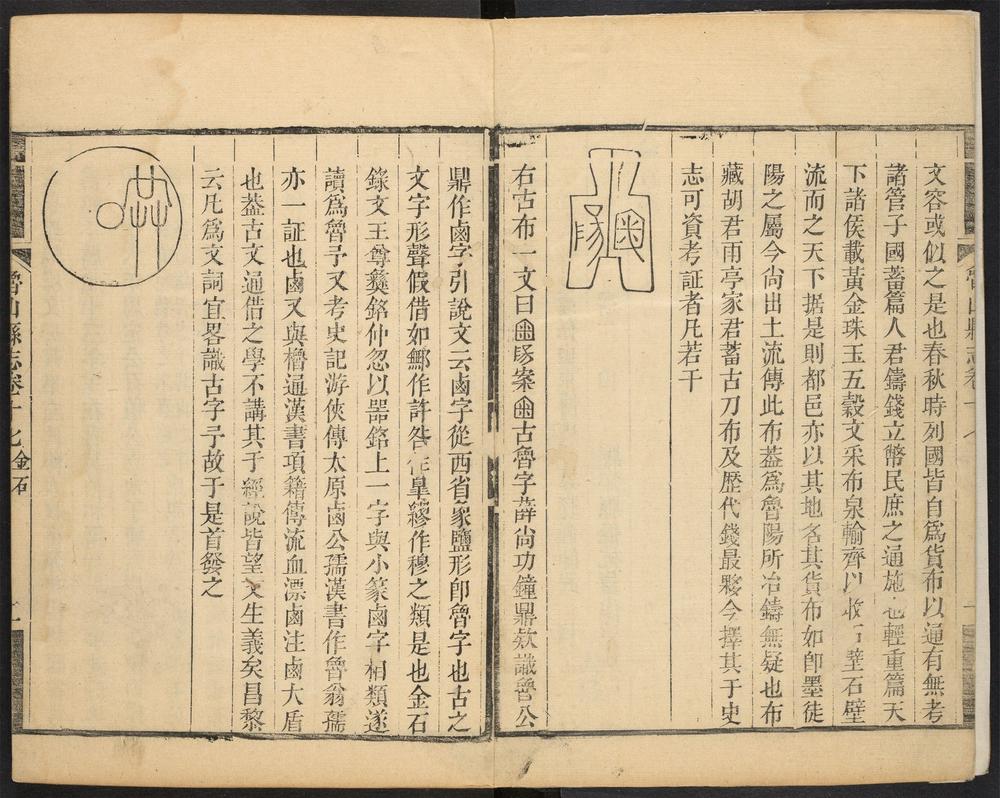 文容或似之是也春秋時列國皆自爲貨布以通有無考
諸管子國蓄篇人君鑄錢立幣民庶之通施也輕重篇天
下諸侯載黃金珠玉五穀文采布泉輸齊以收石璧石壁
流而之天下据是則都邑亦以其地名其貨布如卽墨徒
陽之屬今尙出土流傳此布葢爲魯陽所冶鑄無疑也布
藏胡君雨亭家君蓄古刀布及歷代錢最夥今擇其于史
志可資考証者凡若干
右古布一文曰㢴古魯字薛尙功鐘鼎欵識魯公
鼎作鹵字引說文云鹵字從西省象鹽形卽魯字也古之
文字形聲假借如鄦作許咎作臯繆作穆之類是也金石
錄文王尊彝銘仲忽以器銘上一字與小篆鹵字相類遂
讀爲魯子又考史記游俠傳太原鹵公孺漢書作魯翁孺
亦一証也鹵又與櫓通漢書項籍傳流血漂鹵注鹵大盾
也葢古文通借之學不講其于經說皆望文生義矣昌黎
云凡爲文詞宜畧識古字予故于是首發之
魯山縣志卷十九 金石